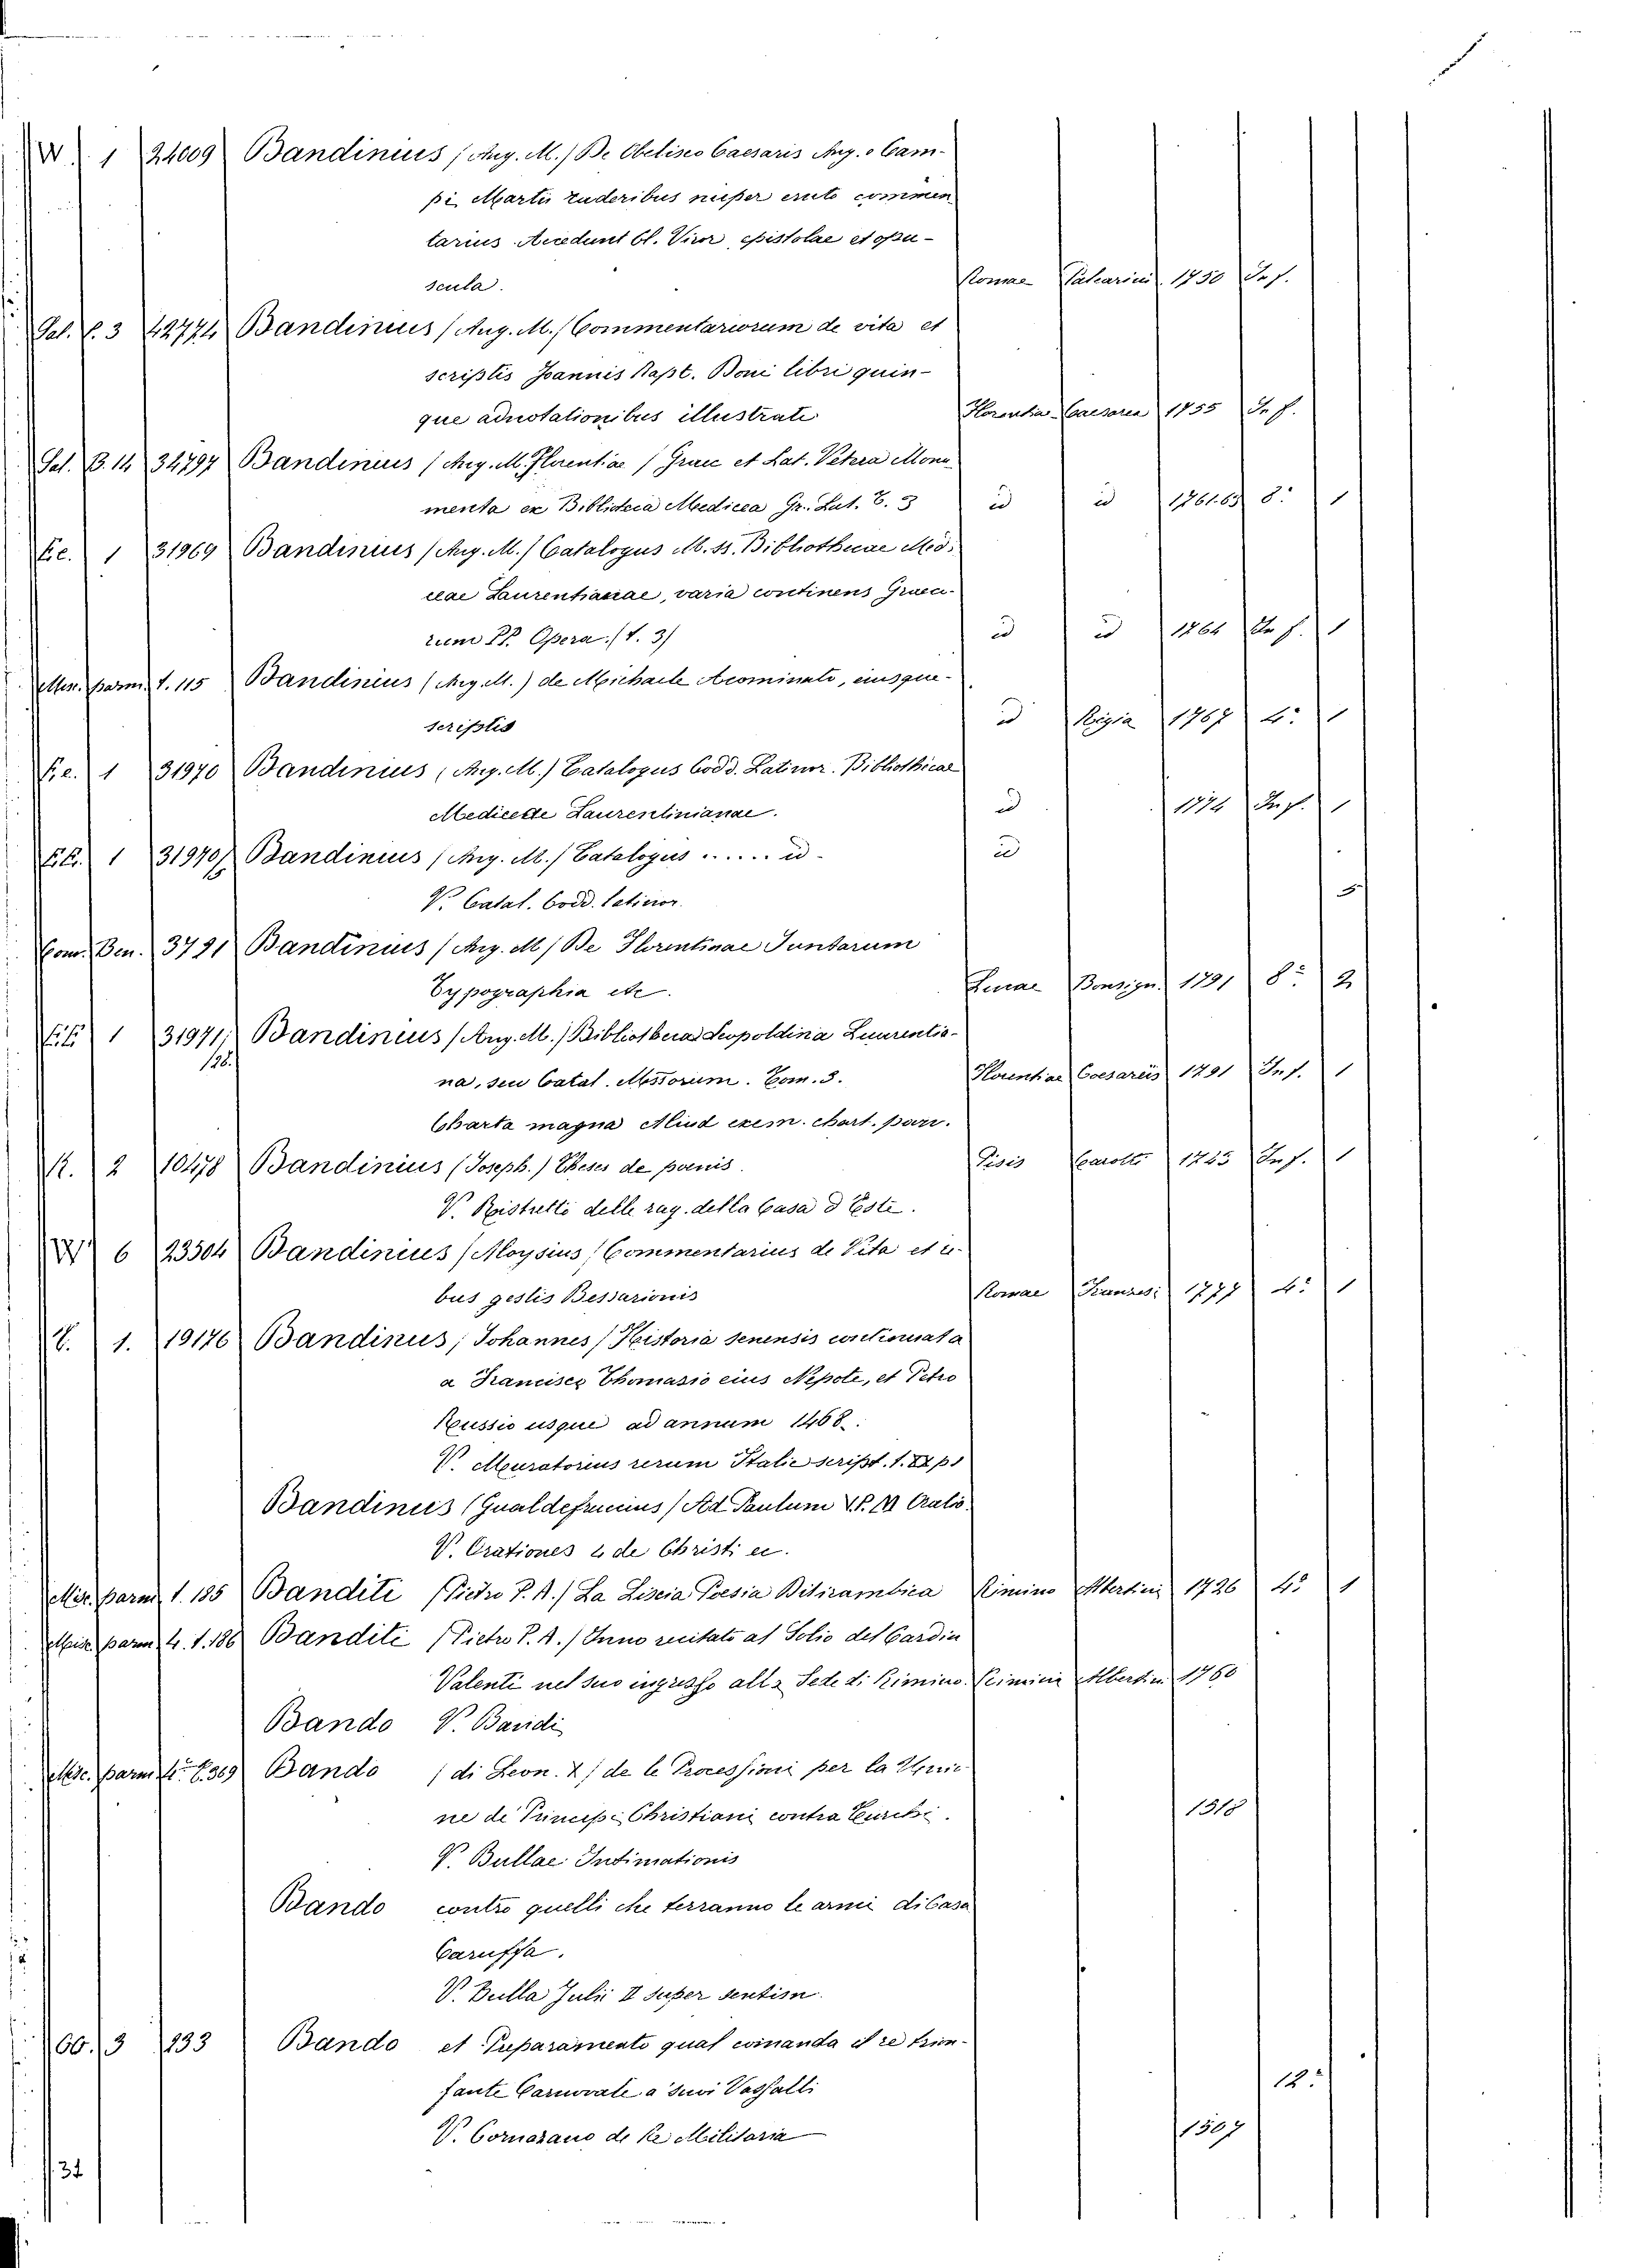 W. 1 24009 Bandinius (Ang. M.) De Obelisco Caesaris Aug. e Cam-
pi Martis ruderibus nuper eruto commen
tarius Accedunt Cl. Viror. epistolae et opu-
scula. Romae 1750 In f.
Gal. 3 42774 Bandinius (Ang. M.) Commentariorum de vita et
scriptis Joannis Bapt. Doni libri quin-
que adnotationibus illustrati Florentiae Caesarea 1755 In f.
Gal. B. 14 34797 Bandinius (Ang. M. Florentiae) Graec et Lat. Vetera Monu
menta ex Biblioteca Medicea Gr. Lat. T. 3 id id 1761.63 8.° 1
1 31969 Bandinius (Ang. M.) Catalogus M. ss. Bibliothecae Med.
ceae Laurentianae, varia continens Graeco-
rum PP. Opera. (t. 3) id id 1764 In f. 1
parm. t. 115 Bandinius (Ang. M.) de Michaele Acominato, eiusque
scriptis id Regia 1767 4.° 1
1 31970 Bandinius (Ang. M.) Catalogus Codd. Latinor. Bibliothecae
Mediceae Laurentinianae. id 1774 In f. 1
1 31970 Bandinius (Ang. M.) Catalogus ..... id id
V. Catal. Codd. latinor.
Com. Ben. 3791 Bandinius (Ang. M) De Florentinae Juntarum
Typographia etc. Lucae Bonsign. 1791 8.° 2
1 31971 Bandinius (Ang. M.) Biblioteca Leopoldina Laurentia-
na, seu Catal. Mss.torum. Tom. 3. Florentiae Caesareis 1791 In f. 1
Charta magna Aliud exem. chart. parv.
R. 2 10478 Bandinius (Joseph.) Theses de poenis. Pisis Carotti 1745 In f. 1
V. Ristretto delle rag. della Casa d'Este.
6 23504 Bandinius (Aloysius) Commentarius de Vita et re-
bus gestis Bessarionis Romae Franzesi 1777 4.° 1
1. 19176 Bandinus, Johannes (Historia senensis continuata
a Francisco Thomasio eius Nepote, et Petro
Russio usque ad annum 1468.
V. Muratorius rerum Italic script. t. XX p.
Bandinus (Gualdefrucius) Ad Paulum V. P. M Oratio.
V. Orationes 4 de Christi
parm t. 185 Banditi (Pietro P. A.) La Liscia Poesia Ditirambica Rimino Albertini 1726 4.° 1
parm 4. t. 186 Banditi (Pietro P. A.) Inno recitato al Solio del Cardin
Valenti nel suo ingresso alla Sede di Rimino. Rimini Albertini 1760
Bando V. Bandi
Misc. parm 4.° t. 369 Bando (di Leon. X) de le Processioni per la Unio
ne de Principi Christiani contra Turchi. 1518
V. Bullae Intimationis
Bando contro quelli che terranno le armi di Casa
Caraffa.
V. Bulla Julii II super sentim.
66. 3 933 Bando et Preparamento qual comanda il re trion-
fante Carnovale a' suoi Vassalli 12.°
V. Cornazano de Re Militaria 1507
32